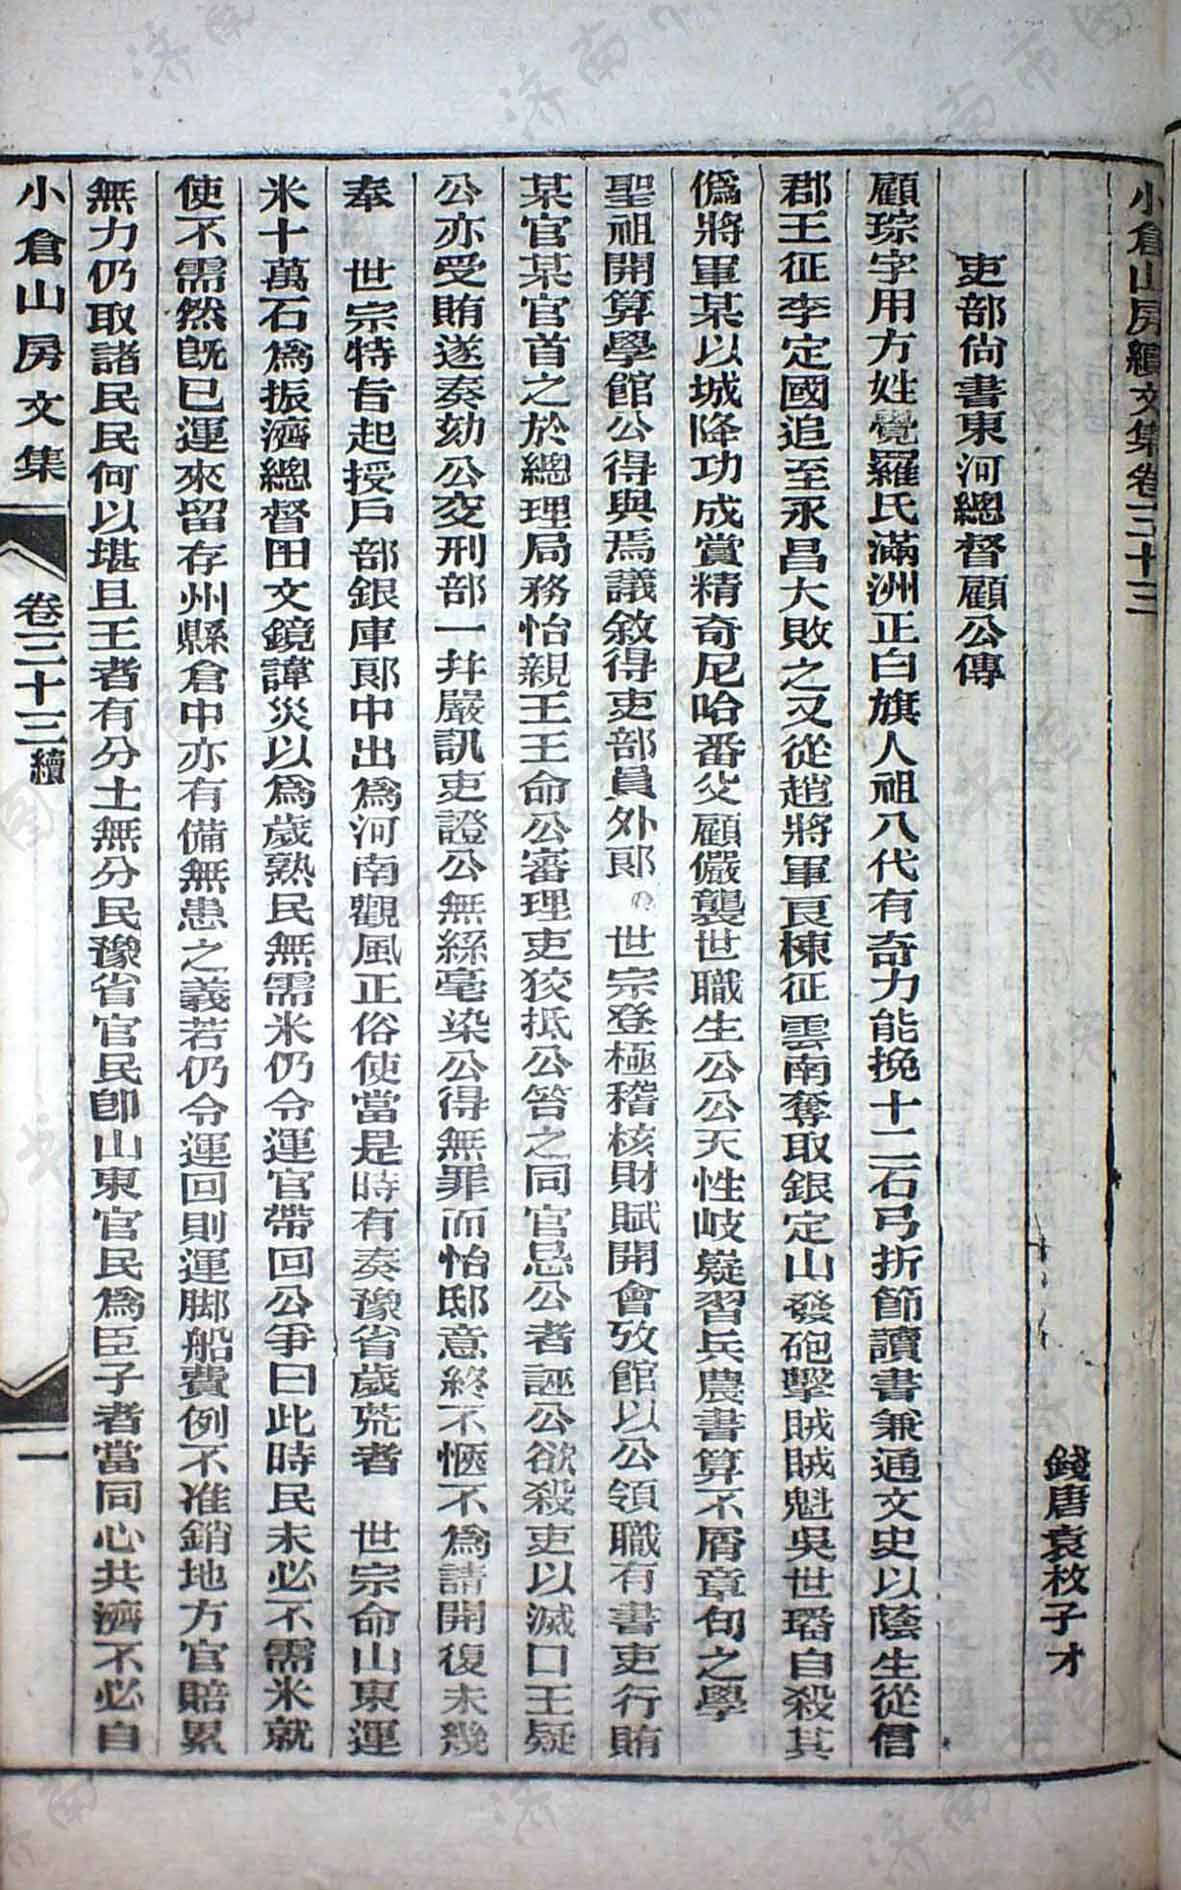 小倉山房續文集卷三十三
錢唐袁枚子才
吏部尙書東河總督顧公傳
顧琮字用方姓覺羅氏滿洲正白旗人祖八代有奇力能挽十二石弓折節讀書兼通文史以蔭生從信
郡王征李定國追至永昌大敗之又從趙將軍良棟征雲南奪取銀定山發砲擊賊賊魁吳世璠自殺其
僞將軍某以城降功成賞精奇尼哈番父顧儼襲世職生公公天性岐嶷習兵農書算不屑章句之學
聖祖開算學館公得與焉議敘得吏部員外郎 世宗登極稽核財賦開會攷館以公領職有書吏行賄
某官某官首之於總理局務怡親王王命公審理吏狡抵公笞之同官忌公者誣公欲殺吏以滅口王疑
公亦受賄遂奏劾公交刑部一幷嚴訊吏證公無絲毫染公得無罪而怡邸意終不愜不爲請開復未幾
奉 世宗特旨起授戶部銀庫郎中出爲河南觀風正俗使當是時有奏豫省歲荒者 世宗命山東運
米十萬石爲振濟總督田文鏡諱災以爲歲熟民無需米仍令運官帶回公爭曰此時民未必不需米就
使不需然旣已運來留存州縣倉中亦有備無患之義若仍令運回則運脚船費例不准銷地方官賠累
無力仍取諸民民何以堪且王者有分土無分民豫省官民卽山東官民爲臣子者當同心共濟不必自
小倉山房文集 卷三十三續 一